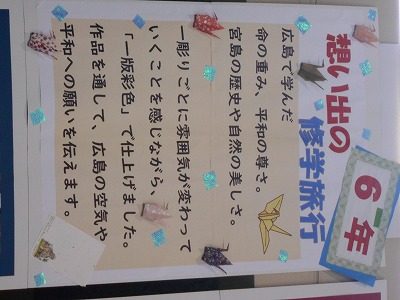 想い出の
修学旅行
6年
広島で学んだ
命の重み、平和の尊さ。
宮島の歴史や自然の美しさ。
一彫りごとに雰囲気が変わって
いくことを感じながら、
「一版彩色」で仕上げました。
作品を通して、広島の空気や
平和への願いを伝えます。